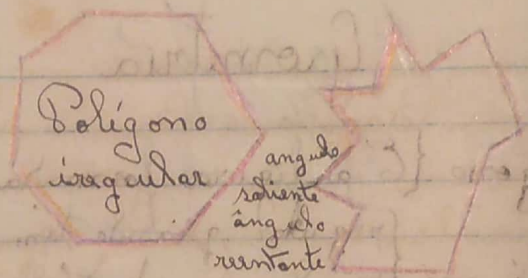 Polígono
iregular
angulo
saliente
ângulo
reentante